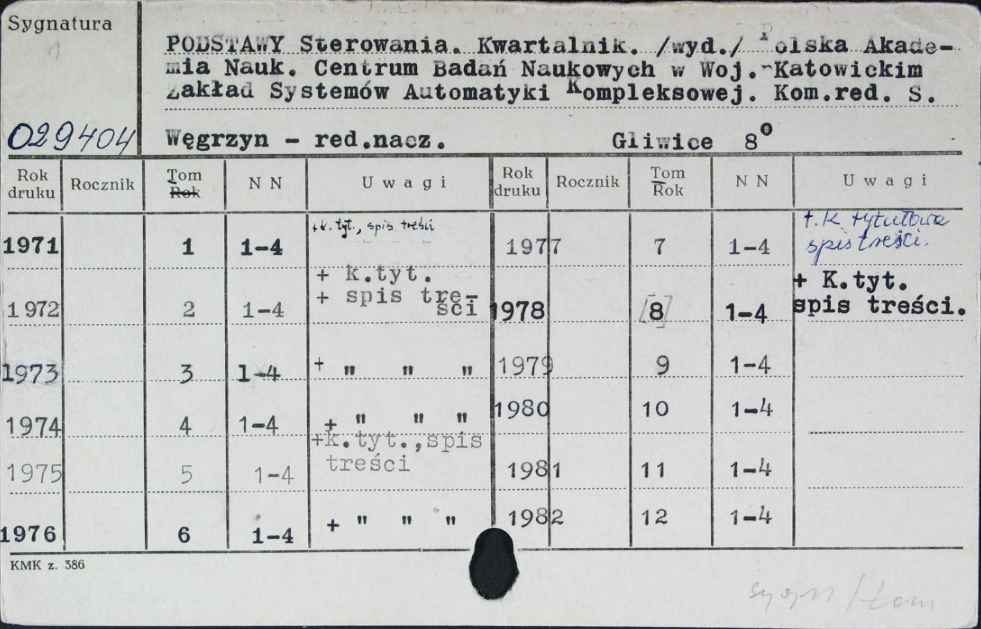 Sygnatura
PODSTAWY Sterowania. Kwartalnik. /wyd./ Polska Akade-
mia Nauk. Centrum Badań Naukowych w Woj.-Katowickim
Zakład Systemów Automatyki Kompleksowej. Kom.red. S.
029404 Węgrzyn - red.nacz. Gliwice 8°
Rok druku Rocznik Tom Rok N N Uwagi Rok druku Rocznik Tom Rok N N Uwagi
1971 1 1-4 +k. tyt., spis treści 1977 7 1-4 t. K tytułowa
spis treści.
1972 2 1-4 + k.tyt.
+ spis tre-
ści 1978 [8] 1-4 + K.tyt.
spis treści.
1973 3 1-4 + " " " 1979 9 1-4
1974 4 1-4 + " " " 1980 10 1-4
1975 5 1-4 +k.tyt.,spis
treści 1981 11 1-4
1976 6 1-4 + " " " 1982 12 1-4
KMK z. 386